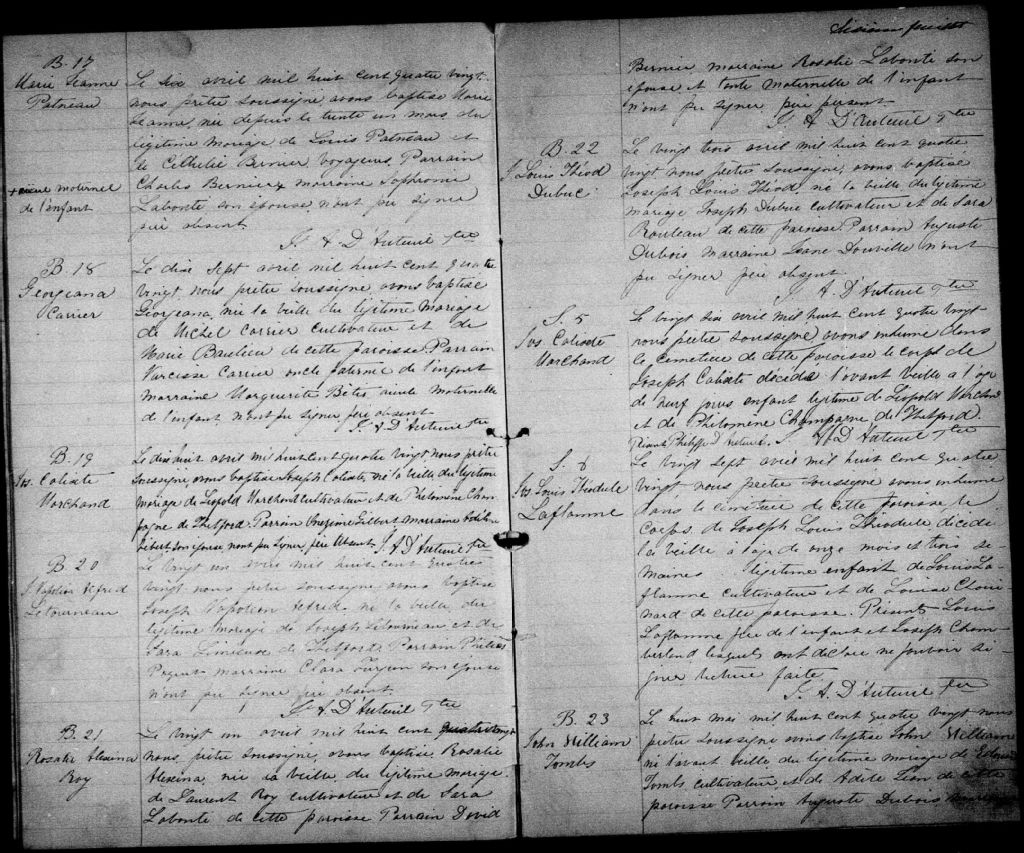 B. 17
Marie Jeanne
Patneau
Le six avril mil huit cent quatre vingt
nous prêtre soussigné avons baptisé Marie
Jeanne, née depuis le trente un mars du
légitime mariage de Louis Patneau et
de Bernier voyageurs Parrain
Charles Bernier x marraine Sophronie
+ aieul maternel
de l'enfant
Labonté son épouse n'ont pu signer
père absent
J. A D'Auteuil Ptre
B. 18
Georgeana
Carrier
Le dix sept avril mil huit cent quatre
vingt, nous prêtre soussigné, avons baptisé
Georgeana, née la veille du légitime mariage
de Michel Carrier cultivateur et de
Marie Baulieu de cette paroisse Parrain
Narcisse Carrier oncle paternel de l'enfant
marraine Marguerite aieule maternelle
de l'enfant n'ont pu signer père absent
J. A D'Auteuil Ptre
B. 19
Jos. Calixte
Marchand
Le dix huit avril mil huit cent quatre vingt nous prêtre
soussigné avons baptisé Joseph Calixte, né la veille du légitime
mariage de Léopold Marchand cultivateur et de Philomène Cham
pagne de Thetford. Parrain Onezime Gilbert marraine
son épouse n'ont pu signer, père absent J. A D'Auteuil Ptre
B. 20
J. Napoléon Alfred
Letourneau
Le vingt un avril mil huit cent quatre
vingt, nous prêtre soussigné, avons baptisé
Joseph Napoléon Alfred, né la veille, du
légitime mariage de Joseph Letourneau et de
Sara de Thetford Parrain
marraine Clara Turgeon son épouse
n'ont pu signer père absent.
J. A. D'Auteuil Ptre
B. 21
Rosalie Alexina
Roy
Le vingt un avril mil huit cent quatre vingt
nous, prêtre soussigné, avons baptisé Rosalie
Alexina, née la veille du légitime mariage
de Laurent Roy cultivateur et de Sara
Labonté de cette paroisse Parrain David
feuillet
Bernier marraine Rosalie Labonté son
épouse et tante maternelle de l'enfant
n'ont pu signer père présent
J. A D'Auteuil Ptre
B. 22
J. Louis Théod
Dubuc
Le vingt trois avril mil huit cent quatre
vingt nous prêtre soussigné, avons baptisé
Joseph Louis Théod né la veille du légitime
mariage Joseph Dubuc cultivateur et de Sara
Rouleau de cette paroisse Parrain Auguste
Dubois Marraine Jeane Douville n'ont
pu signer père absent
J. A. D'Auteuil Ptre
S. 5
Jos Calixte
Marchand
Le vingt six avril mil huit cent quatre vingt
nous prêtre soussigné avons inhumé dans
le cimetière de cette paroisse le corps de
Joseph Calixte décédé l'avant veille à l'age
de neuf jours enfant légitime de Léopold Marchand
et de Philomène Champagne de Thetford.
Présent Philippe D'Auteuil. J. A D'Auteuil Ptre
S. 6
Jos Louis Théodule
Laflamme
Le vingt sept avril mil huit cent quatre
vingt nous prêtre soussigné avons inhumé
dans le cimetière de cette paroisse le
corps de Joseph Louis Théodule décédé
la veille à l'age de onze mois et trois se
maines légitime enfant de Louis La
flamme cultivateur et de Louise Choui
nard de cette paroisse. Présents Louis
Laflamme père de l'enfant et Joseph Cham
berland lesquels ont déclaré ne pouvoir si
gner lecture faite
J. A. D'Auteuil Ptre
B. 23
John William
Tombs
Le huit mai mil huit cent quatre vingt nous
prêtre soussigné avons baptisé John William
né l'avant veille du légitime mariage de
Tombs cultivateur, et de Adèle de cette
paroisse Parrain Auguste Dubois marraine